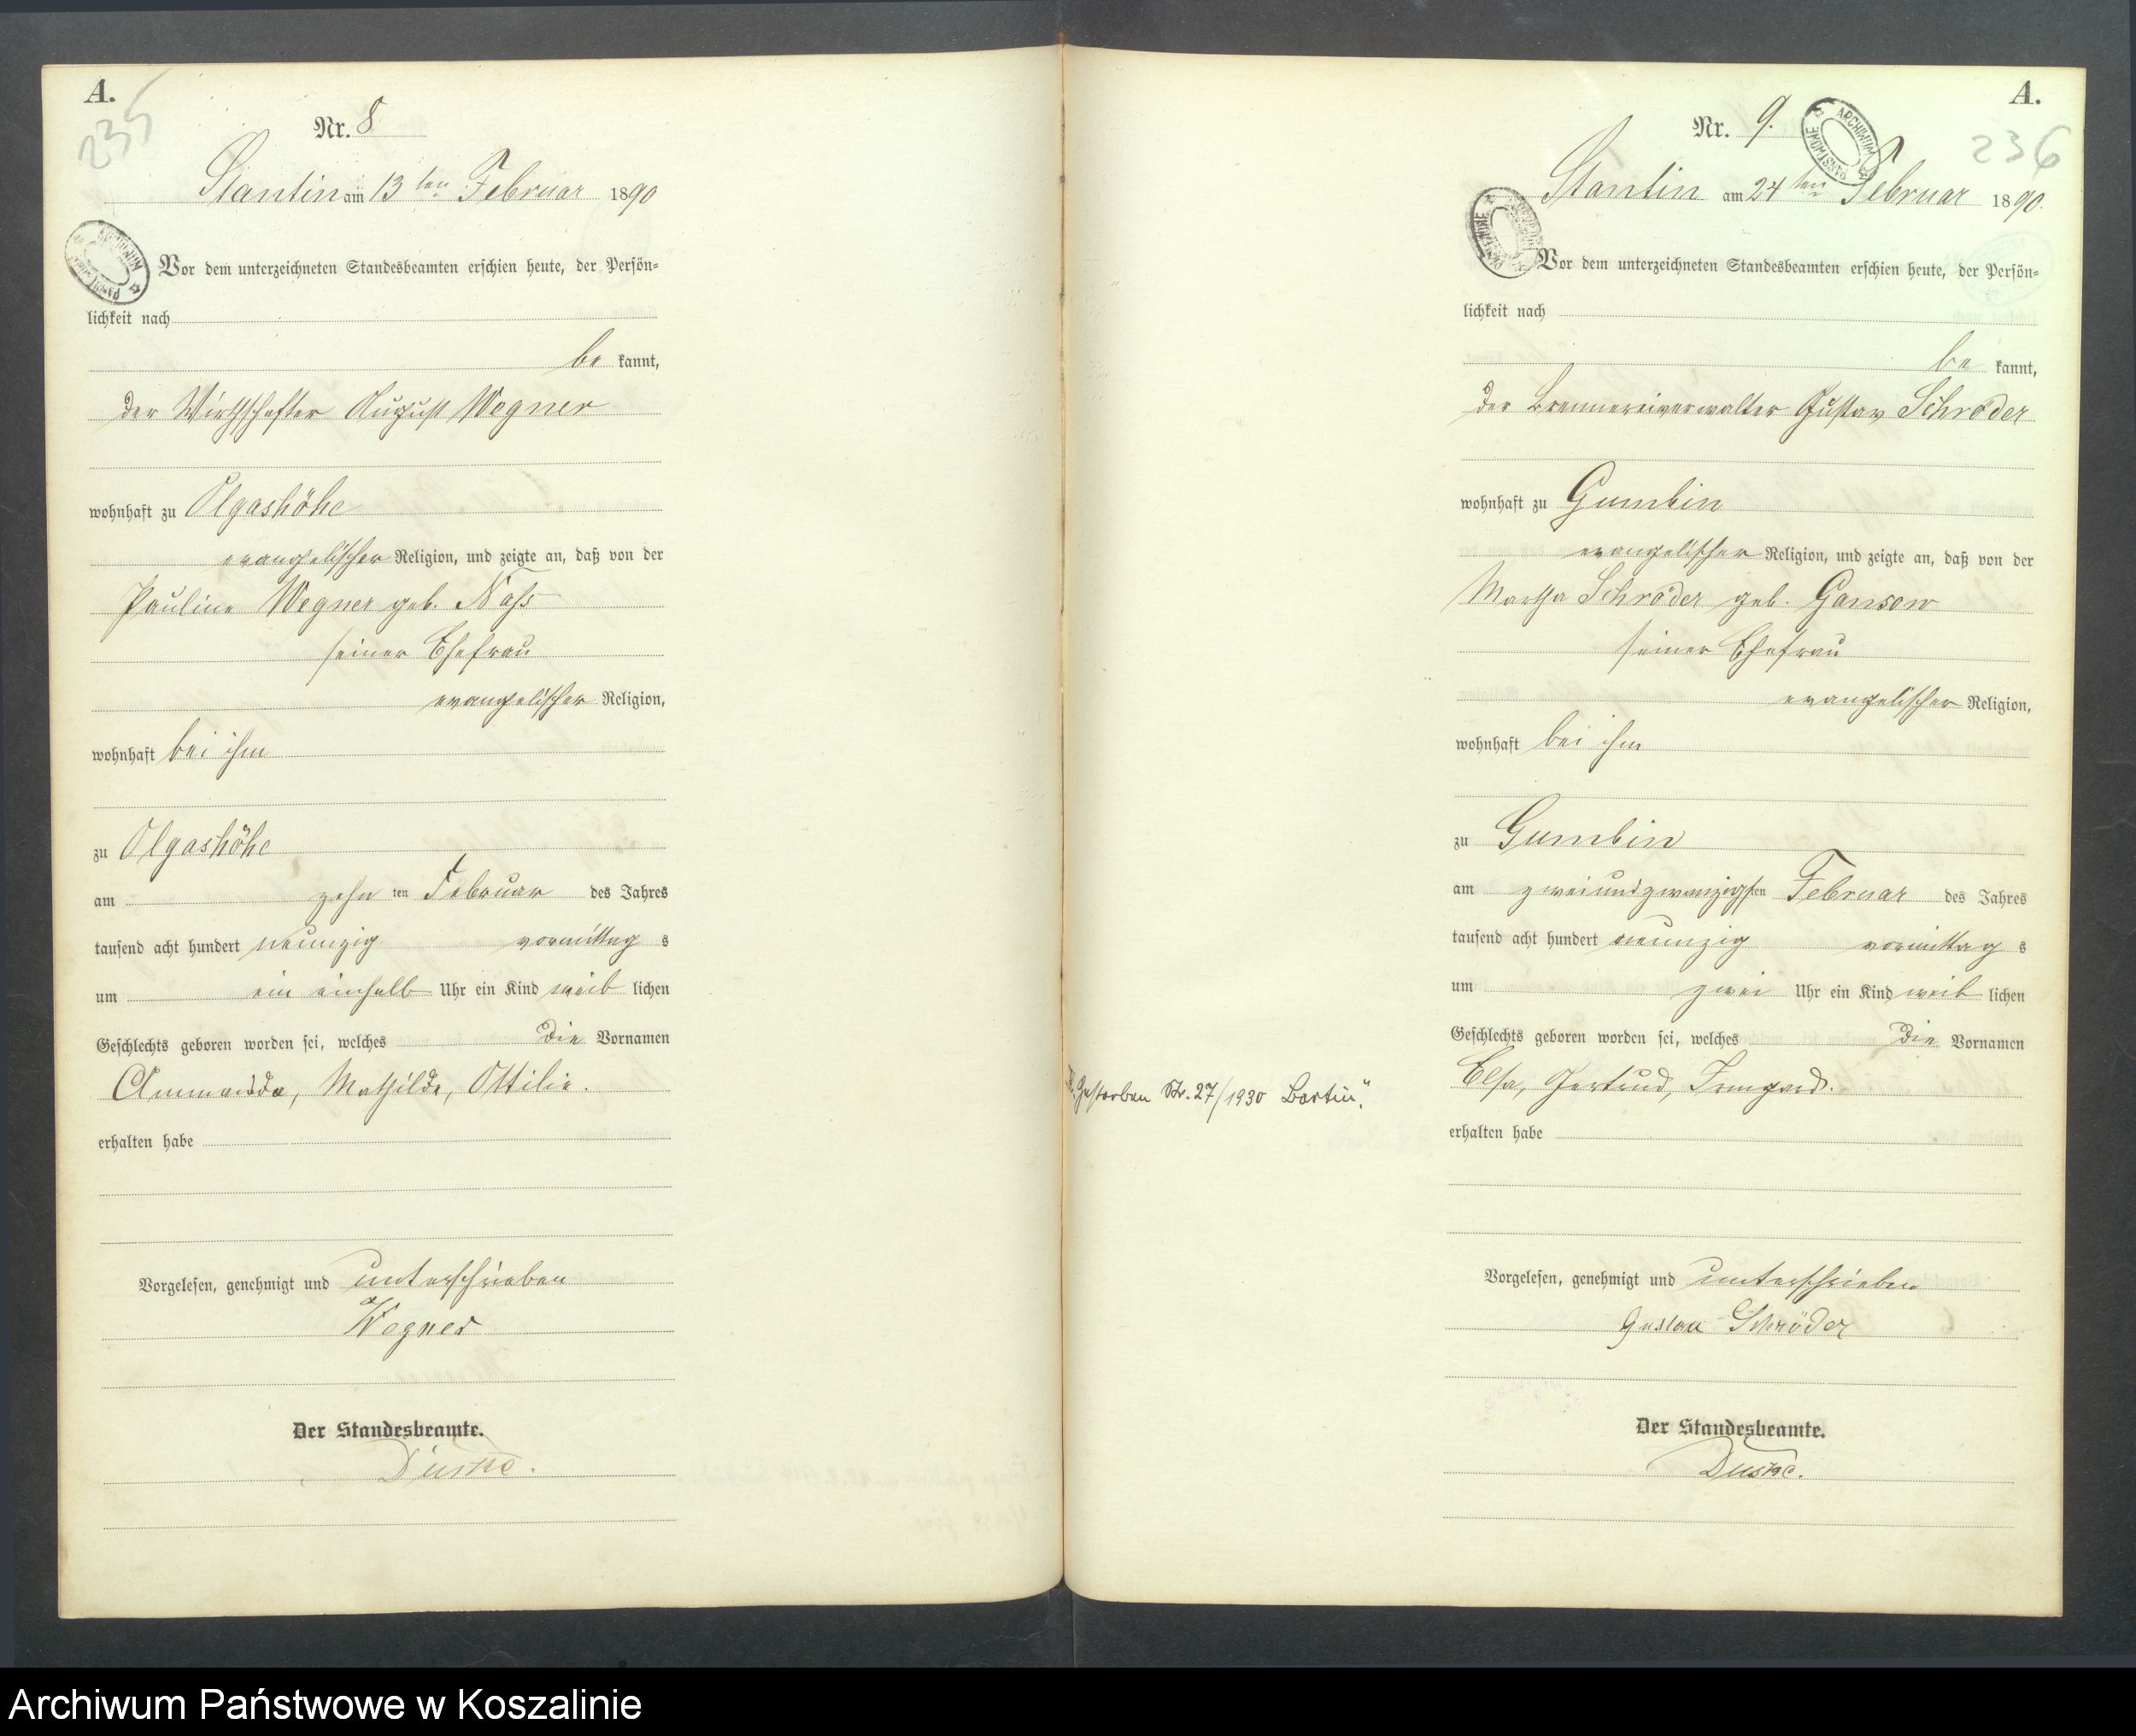 A.
235
Nr. 8
Stantin am 13ten Februar 1890
ARCHIWUM PAŃSTWOWE
Vor dem unterzeichneten Standesbeamten erschien heute, der Persön=
lichkeit nach
be kannt,
der Wirthschafter August Wegner
wohnhaft zu Olgashöhe
evangelischer Religion, und zeigte an, daß von der
Pauline Wegner geb. Naß
seiner Ehefrau
evangelischer Religion,
wohnhaft bei ihm
zu Olgashöhe
am zehn ten Februar des Jahres
tausend acht hundert neunzig vormittag s
um ein einhalb Uhr ein Kind weib lichen
Geschlechts geboren worden sei, welches die Vornamen
Mathilde, Ottilie.
erhalten habe
Vorgelesen, genehmigt und unterschrieben
Wegner
Der Standesbeamte.
A.
236
Nr. 9.
ARCHIWUM PAŃSTWOWE
Stantin am 24ten Februar 1890.
Vor dem unterzeichneten Standesbeamten erschien heute, der Persön=
lichkeit nach
be kannt,
der Brennereiverwalter Gustav Schröder
wohnhaft zu Gumbin
evangelischer Religion, und zeigte an, daß von der
Martha Schröder geb. Gansow
seiner Ehefrau
evangelischer Religion,
wohnhaft bei ihm
zu Gumbin
am zweiundzwanzigsten Februar des Jahres
tausend acht hundert neunzig vormittag s
um zwei Uhr ein Kind weib lichen
Geschlechts geboren worden sei, welches die Vornamen
Elsa, Gertrud, Irmgard.
Gestorben Nr. 27/1930 Bartin".
erhalten habe
Vorgelesen, genehmigt und unterschrieben
Gustav Schröder
Der Standesbeamte.
Archiwum Państwowe w Koszalinie